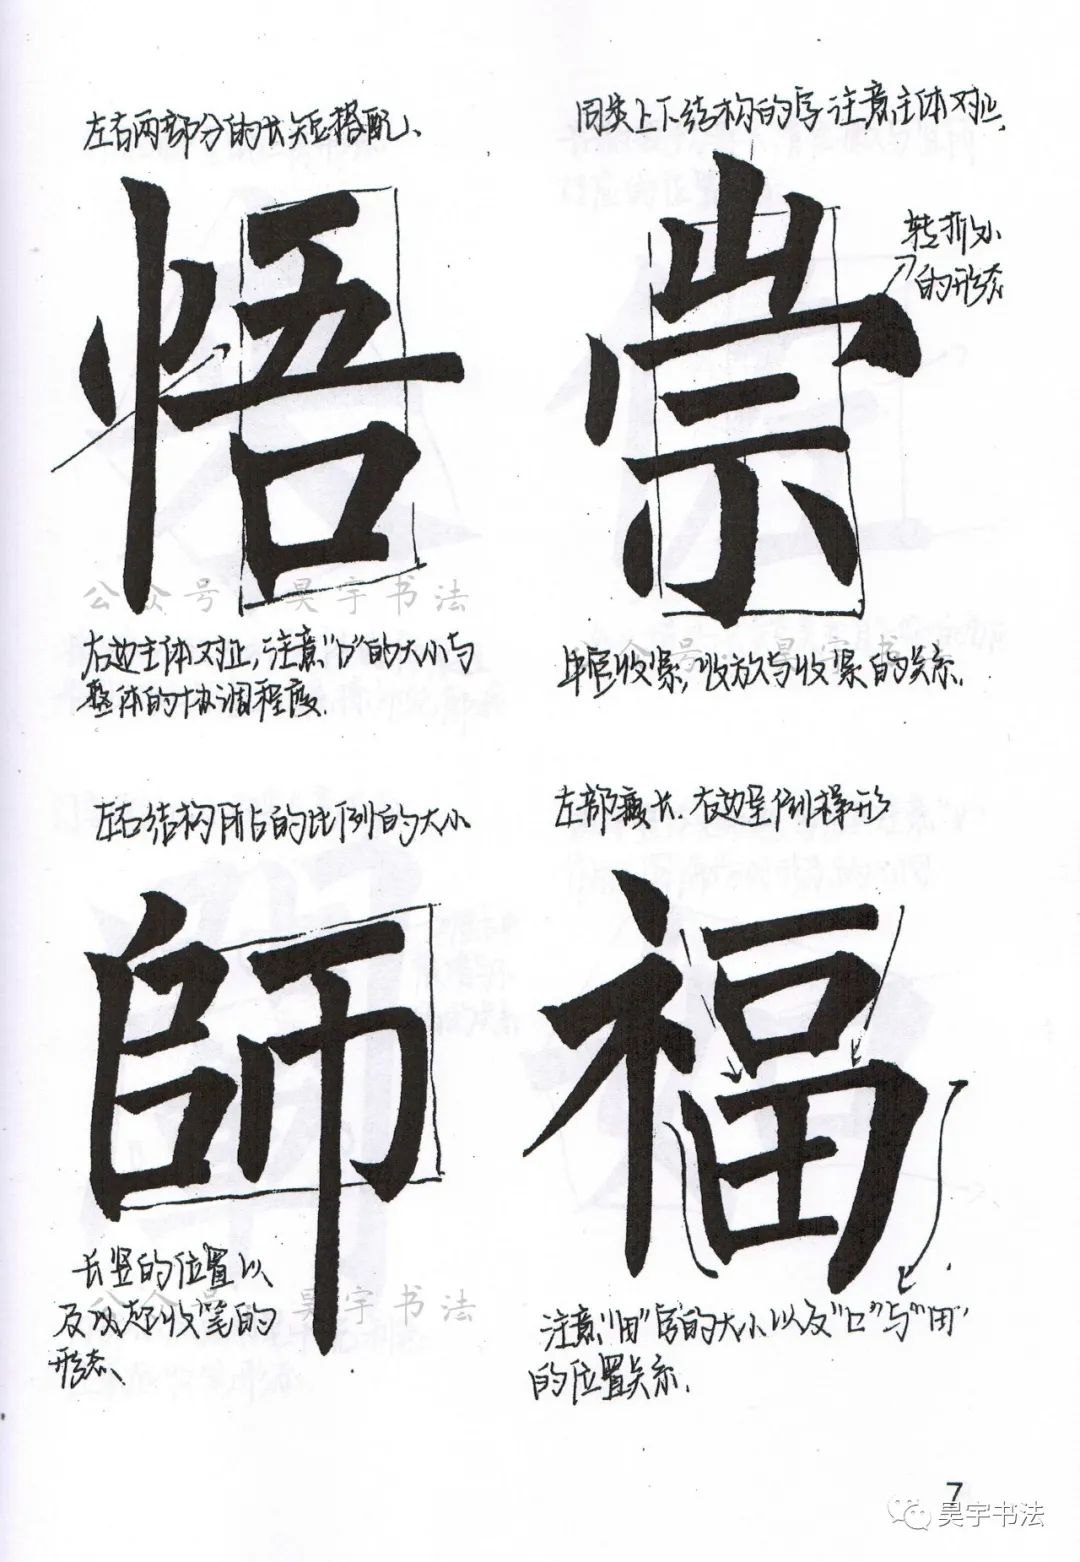 左右两部分的长短搭配、
悟
右边主体对正,注意"口"的大小与
整体的协调程度.
同类上下结构的字注意主体对正,
转折处
的形态
崇
中宫收紧,收放与收紧的关系.
公众号·昊宇书法
公众号·昊宇书法
左右结构所占的比例的大小
師
长竖的位置以
及改起收笔的
形态、
公众号·昊宇书法
左部瘦长.右边呈倒梯形
福
注意"田"字的大小以及"口"与"田"
的位置关系.
7
昊宇书法